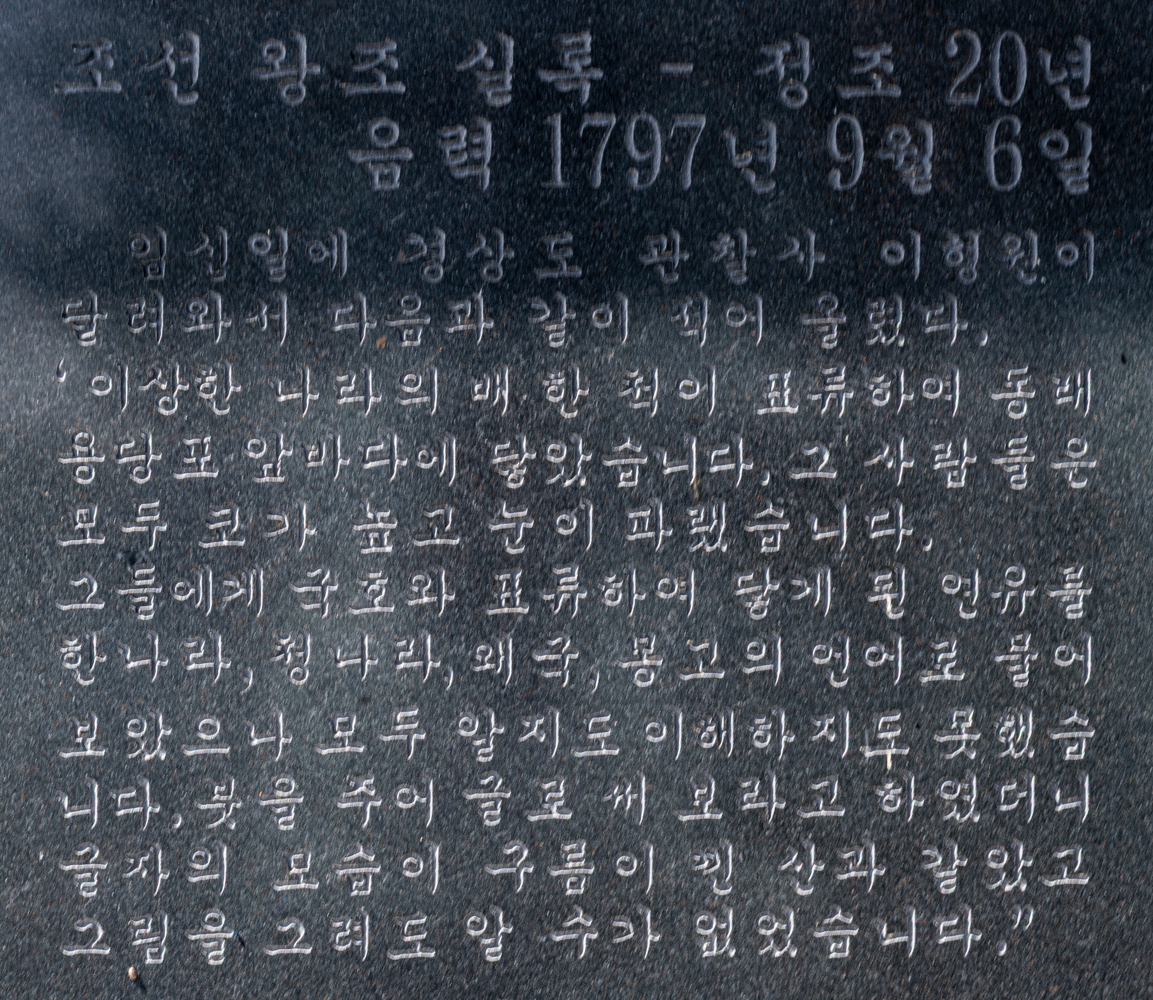 조선 왕조 실록 - 정조 20년
음력 1797년 9월 6일
임신일에 경상도 관찰사 이형원이
달려와서 다음과 같이 적어 올렸다.
‘이상한 나라의 배 한 척이 표류하여 동래
용당포 앞바다에 닿았습니다. 그 사람들은
모두 코가 높고 눈이 파랬습니다.
그들에게 국호와 표류하여 닿게 된 연유를
한나라, 청나라, 왜국, 몽고의 언어로 물어
보았으나 모두 알지도 이해하지도 못했습
니다. 붓을 주어 글로 써 보라고 하였더니
글자의 모습이 구름이 낀 산과 같았고
그림을 그려도 알 수가 없었습니다.”